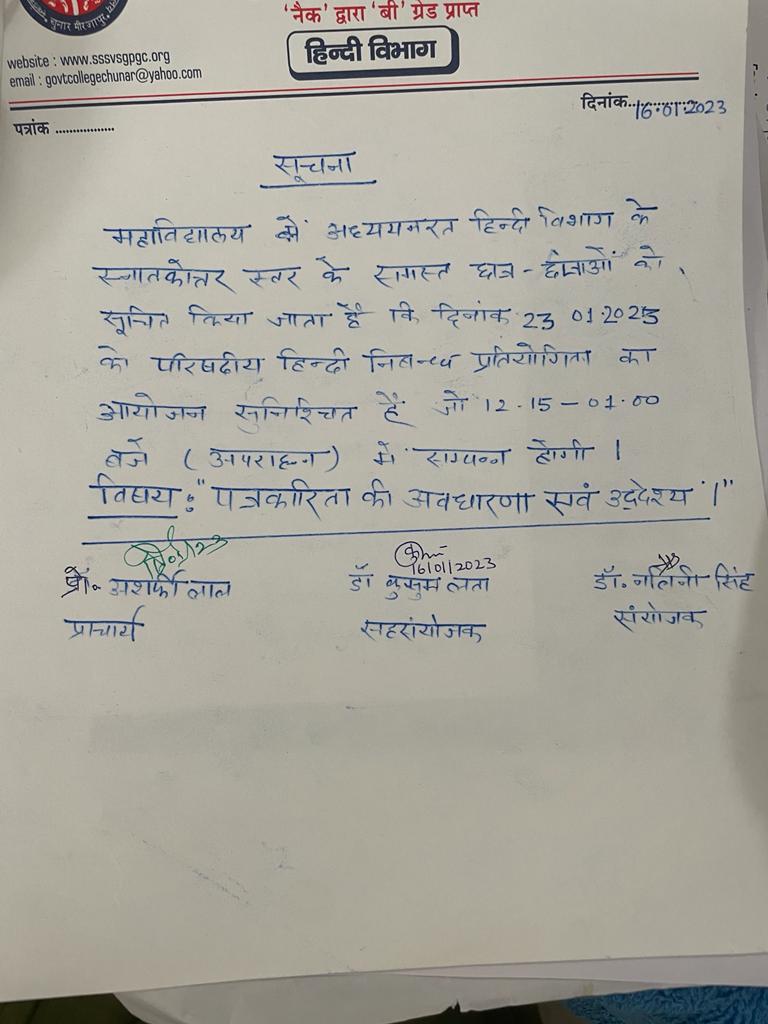 'नैक' द्वारा 'बी' ग्रेड प्राप्त
चुनार मीरजापुर
website : www.sssvsgpgc.org
हिन्दी विभाग
email : govtcollegechunar@yahoo.com
दिनांक..16.01.2023
पत्रांक .................
सूचना
महाविद्यालय में अध्ययनरत हिन्दी विभाग के
स्नातकोत्तर स्तर के समस्त छात्र-छात्राओं को
सूचित किया जाता है कि दिनांक 23 01.2023
को परिषदीय हिन्दी निबन्ध प्रतियोगिता का
आयोजन सुनिश्चित है जो 12.15-01.00
बजे (अपराह्न) में सम्पन्न होगी।
विषय:- "पत्रकारिता की अवधारणा एवं उद्देश्य।"
16/01/2023
प्रो. अशर्फी लाल डॉ कुसुम लता डॉ. नलिनी सिंह
प्राचार्य सहसंयोजक संयोजक